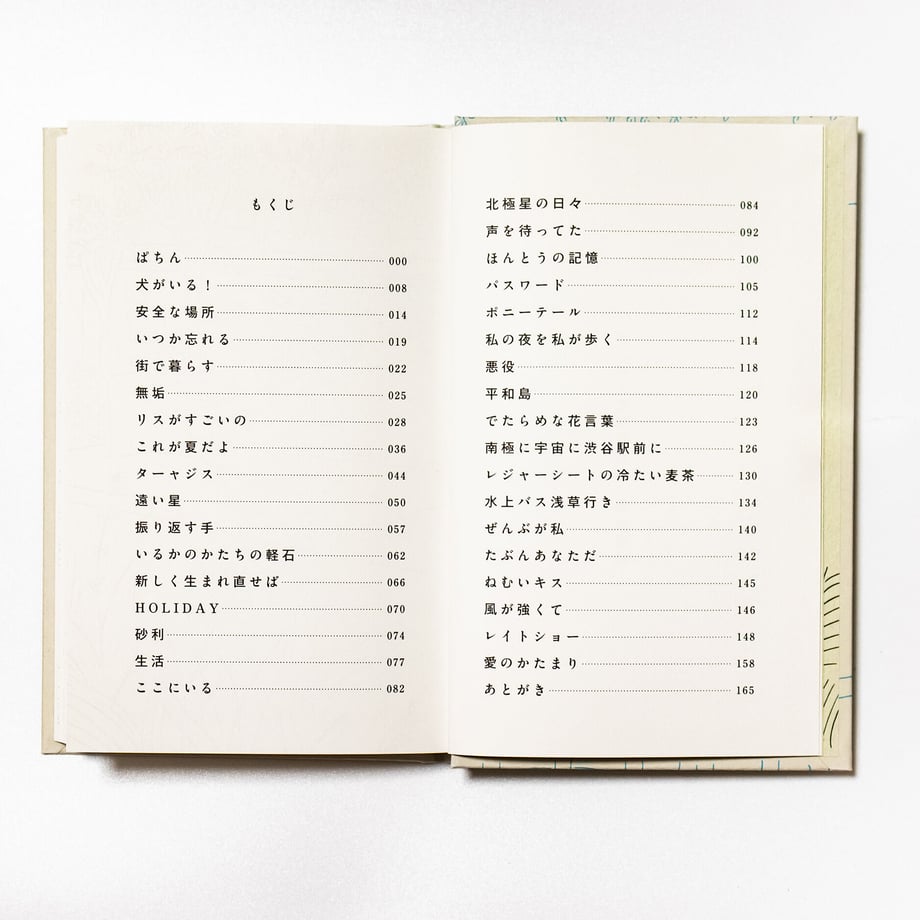 もくじ
ぱちん 000
犬がいる！ 008
安全な場所 014
いつか忘れる 019
街で暮らす 022
無垢 025
リスがすごいの 028
これが夏だよ 036
ターャジス 044
遠い星 050
振り返す手 057
いるかのかたちの軽石 062
新しく生まれ直せば 066
HOLIDAY 070
砂利 074
生活 077
ここにいる 082
北極星の日々 084
声を待ってた 092
ほんとうの記憶 100
パスワード 105
ポニーテール 112
私の夜を私が歩く 114
悪役 118
平和島 120
でたらめな花言葉 123
南極に宇宙に渋谷駅前に 126
レジャーシートの冷たい麦茶 130
水上バス浅草行き 134
ぜんぶが私 140
たぶんあなただ 142
ねむいキス 145
風が強くて 146
レイトショー 148
愛のかたまり 158
あとがき 165